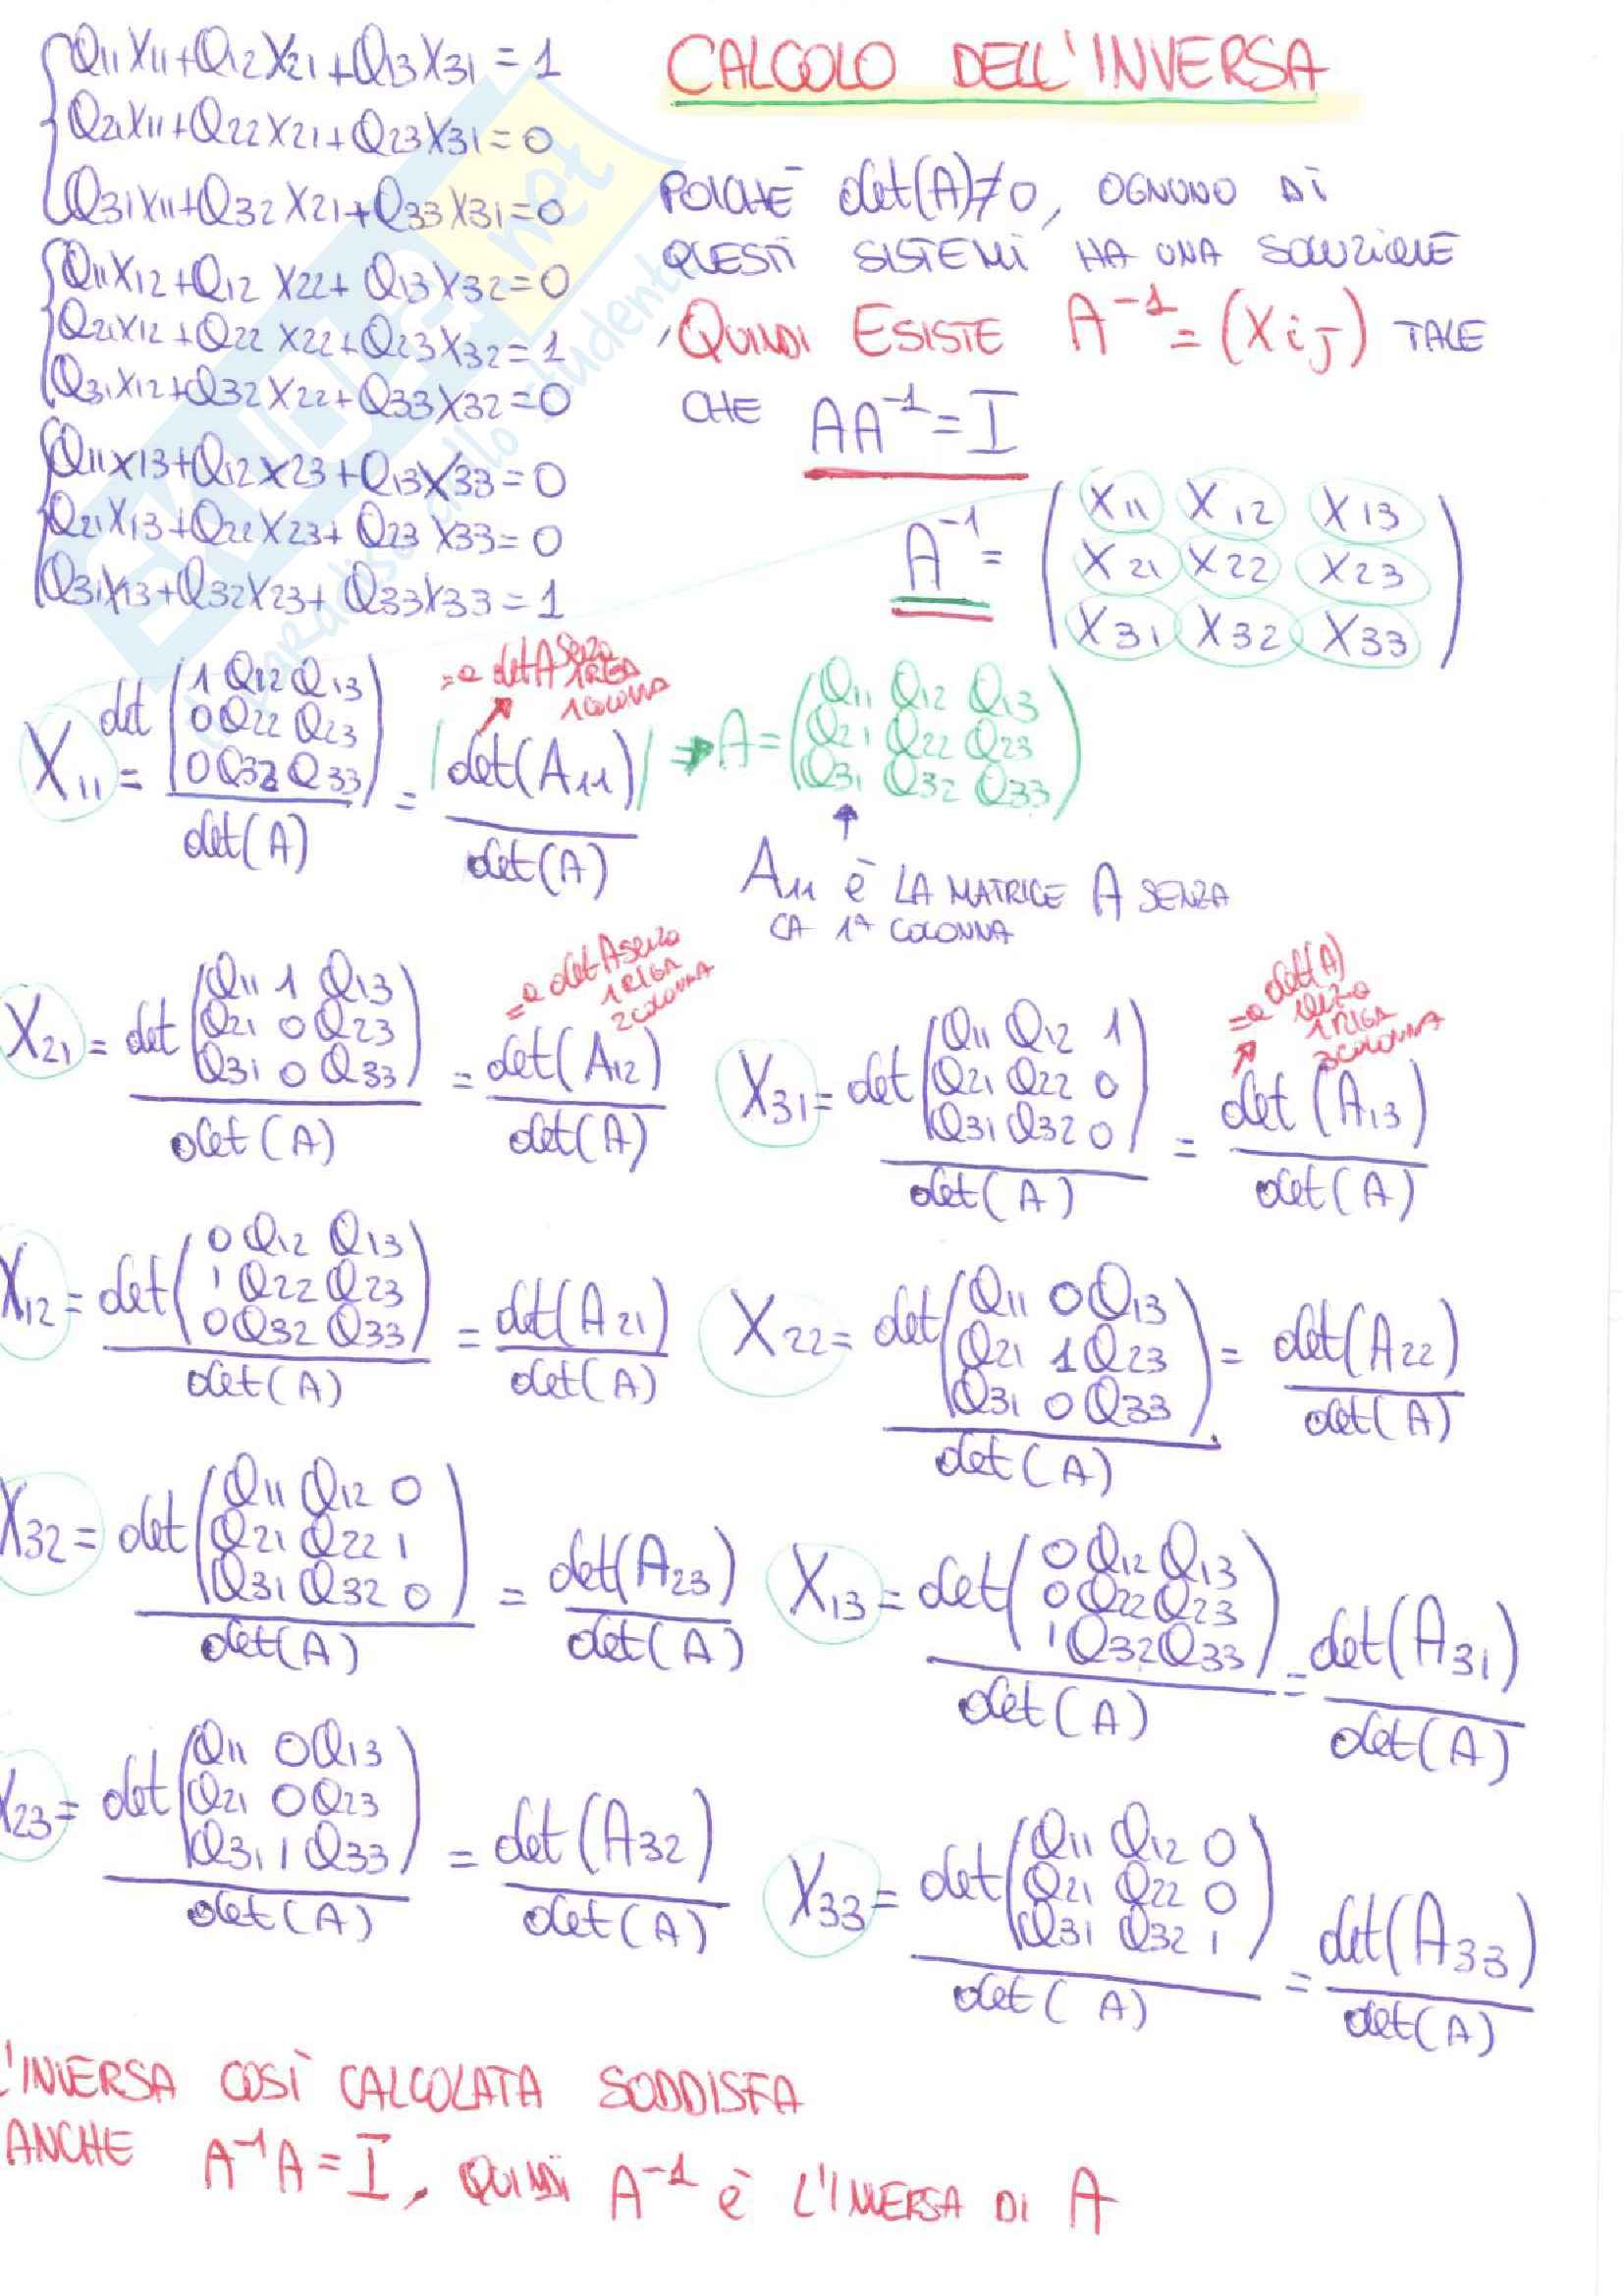 CALCOLO DELL'INVERSA
a11x11+a12x21+a13x31=1
a21x11+a22x21+a23x31=0
a31x11+a32x21+a33x31=0
a11x12+a12x22+a13x32=0
a21x12+a22x22+a23x32=1
a31x12+a32x22+a33x32=0
a11x13+a12x23+a13x33=0
a21x13+a22x23+a23x33=0
a31x13+a32x23+a33x33=1
POICHÈ det(A)≠0, OGNUNO DI
QUESTI SISTEMI HA UNA SOLUZIONE
, QUINDI ESISTE A⁻¹=(xij) TALE
CHE AA⁻¹=I
A⁻¹= (x11 x12 x13
x21 x22 x23
x31 x32 x33)
x11 = det(1 a12 a13
0 a22 a23
0 a32 a33)
det(A)
= |det(A11)|
det(A)
=a detA senza
1 RIGA
1 COLONNA
→A=(a11 a12 a13
a21 a22 a23
a31 a32 a33)
A11 è LA MATRICE A SENZA
LA 1ª COLONNA
x21 = det(a11 1 a13
a21 0 a23
a31 0 a33)
det(A)
= det(A12)
det(A)
=a detA senza
1 RIGA
2 COLONNA
x31= det(a11 a12 1
a21 a22 0
a31 a32 0)
det(A)
= det(A13)
det(A)
=a det(A)
senza
1 RIGA
3 COLONNA
x12= det(0 a12 a13
1 a22 a23
0 a32 a33)
det(A)
= det(A21)
det(A)
x22= det(a11 0 a13
a21 1 a23
a31 0 a33)
det(A)
= det(A22)
det(A)
x32= det(a11 a12 0
a21 a22 1
a31 a32 0)
det(A)
= det(A23)
det(A)
x13= det(0 a12 a13
0 a22 a23
1 a32 a33)
det(A)
= det(A31)
det(A)
x23= det(a11 0 a13
a21 0 a23
a31 1 a33)
det(A)
= det(A32)
det(A)
x33= det(a11 a12 0
a21 a22 0
a31 a32 1)
det(A)
= det(A33)
det(A)
L'INVERSA COSÌ CALCOLATA SODDISFA
ANCHE A⁻¹A=I, QUINDI A⁻¹ è L'INVERSA DI A